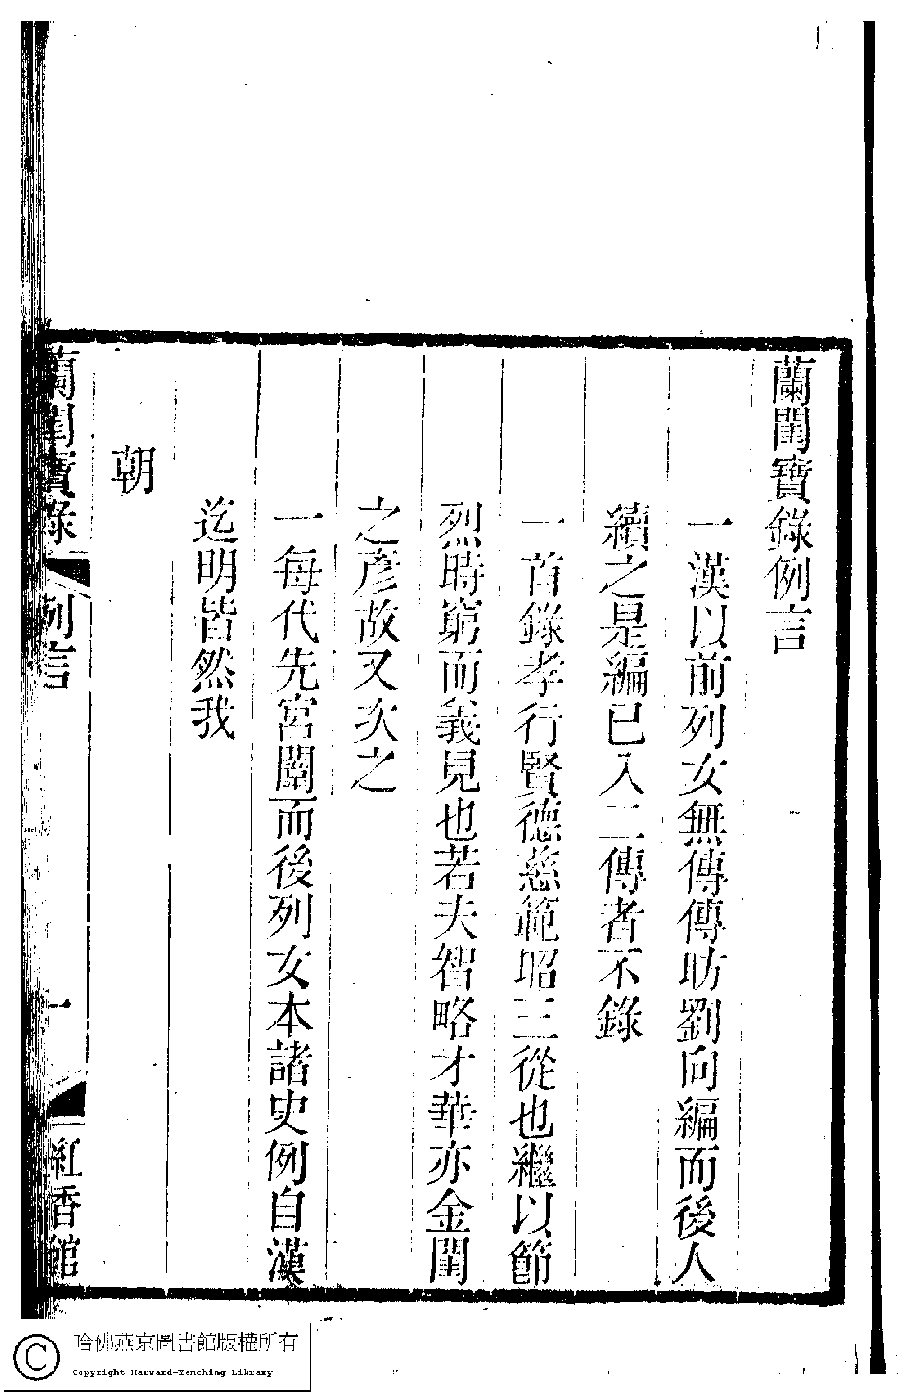 蘭閨寶錄例言
一漢以前列女無傳傳昉劉向編而後人
續之是編已入二傳者不錄
一首錄孝行賢德慈範昭三從也繼以節
烈時窮而義見也若夫智略才華亦金閨
之彥故又次之
一每代先宮闈而後列女本諸史例自漢
迄明皆然我
朝
蘭閨寶錄 例言 一 紅香館
哈佛燕京圖書館版權所有
Copyright Harvard-Yenching Library